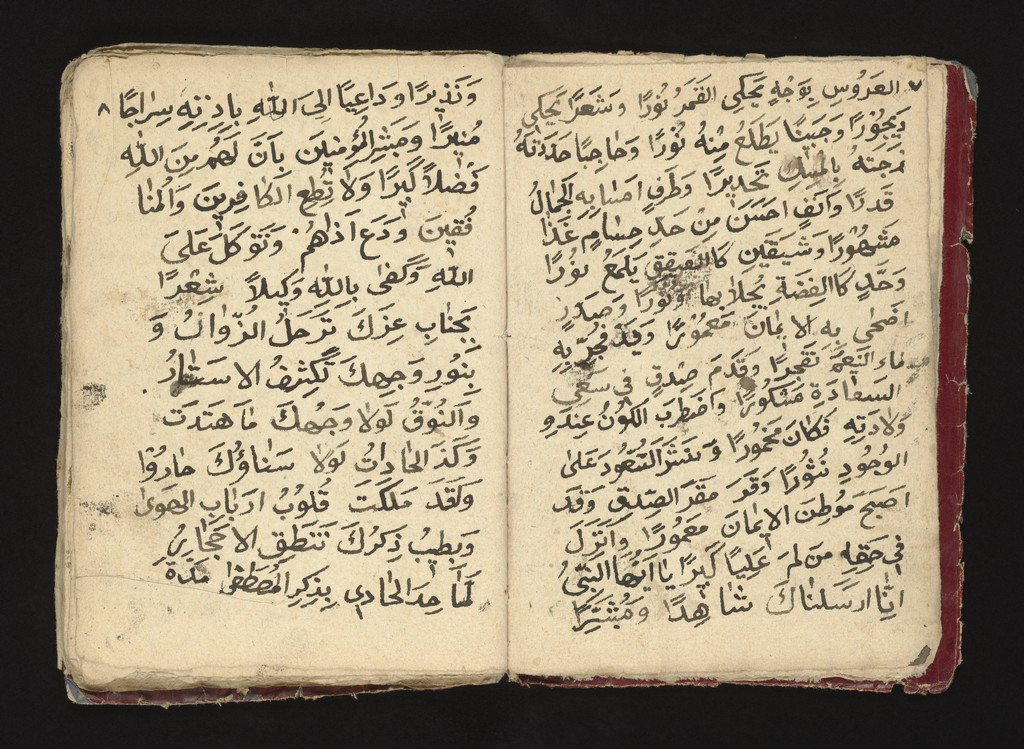 ٧
العَرُوسِ بِوَجْهٍ يَحْكِى القَمَرُ نُورًا وَشَعْرًا يَحْكِى
دَيجُورًا وَجَبينًا يَطْلَعُ مِنْهُ نُوْرًا وَحَاجِبًا حَدَدَتهُ
بِالمِسْكِ تَحْدِيرًا وَطَرفٍ الجَمالُ
قَدرًا وَأنفٍ احسَنَ مِنْ حَدِ حِسَامٍ غَدَا
مَشهُورًا وَشَفَتَيْنِ كَاالعَقِيقِ يَلمَعُ نورًا
وَخَدٍ كَاالفِضَةِ وَنُورًا وَصَدْرٍ
اضحىٰ بِهِ الايْمَانَ مَعْمُوْرًا وَقَدْ فُجِّرَ بِهِ
مَاءَ النَعِيمِ تَفجِيرًا وَقَدَمَ صِدقٍ فى سَعْىِ
السَعَادَةِ مَشْكُورًا وَاضطَربَ الكَوْنُ عِندَ
وِلادَتِهِ فَكَانَ مَخْمُورًا السُعُودَ عَلىٰ
الوُجُودِ نُثُورًا وَقَرَ مَقَرَ الصِدقِ وَقَد
اصبَحَ مَوْطِنَ الايمَانَ مَعمُورًا وَانْزَلَ
فى حَقِهِ مَن لَمْ عَلِيًا كَبِرًا يَا ايُّهَا النَّبِىُّ
انّا ارسَلناكَ شَاهِدًا وَمُبَشِّرًا
٨
وَنَذِيرًا وَدَاعِيًا اِلىَ اللهِ بِاِذْنِهِ سِراجًا
مُنيرًا وَمُبَشِرِ المُؤْمِنيِنَ بِاَنَ لَهُمْ مِنَ اللهِ
فَضْلًا كَبِرًا وَلا تُطِعِ الكَافِرِينَ وَالمُنَا
فِقِينَ وَدَع اَذَاهُمْ وَتَوَكَلْ عَلىَ
اللهِ وَكَفىٰ بِاللهِ وَكِيلًا شِعْرًا
بِجَنابِ عِزِكَ تَرْحَلُ الزُوّارُ وَ
بِنُورِ وَجهِكَ تُكْشِفُ الاستَارُ
وَالنُوقُ لَولا وَجْهُكَ مَا هَتَدَت
وَكَذَ الحَادِاتِ لَولا سَنَاؤُكَ حَارُوْا
وَلَقَدْ مَلَكَت قُلُوْبُ اَربَابِ الهَوىٰ
وَبِطِيبِ ذِكْرِكَ تَنْطِقِ الاحْجَارِ
لَمّا حِدَ الحَادِى بِذِكرِ المُصْطَفىٰ مَدّة